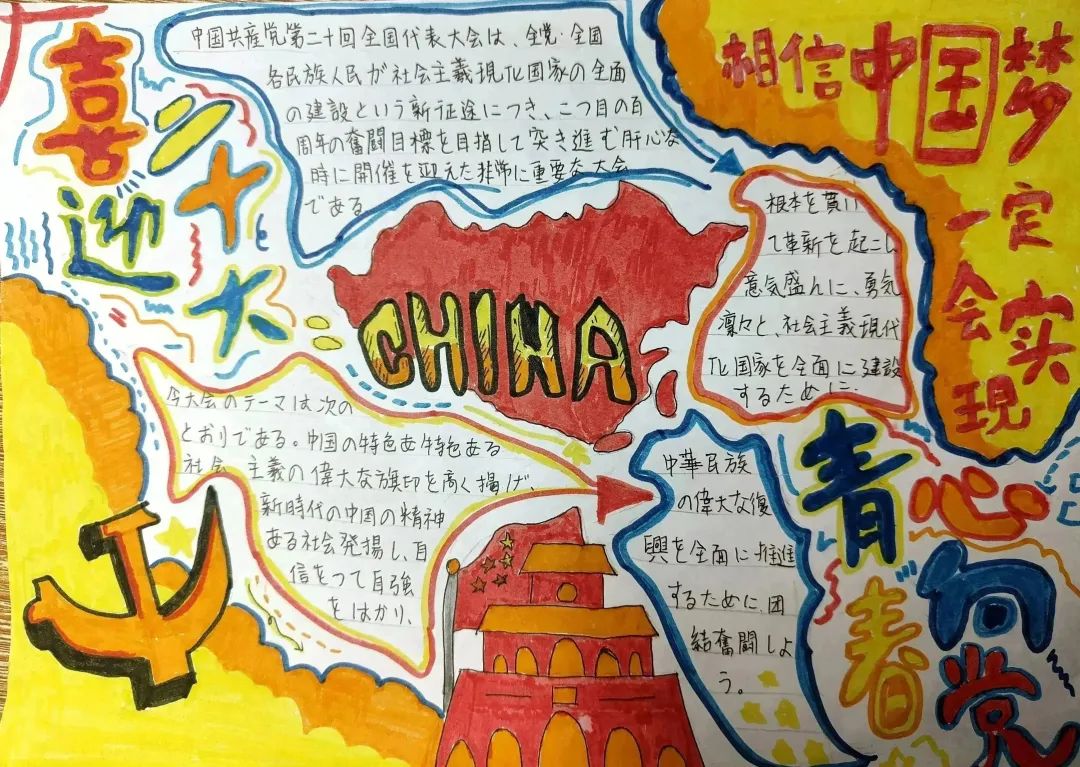 喜迎
二十大
中国共産党第二十回全国代表大会は、全党·全国
各民族人民が社会主義現代化国家の全面
の建設という新征途につき、二つ目の百
周年の奮闘目標を目指して突き進む肝心な
時に開催を迎えた非常に重要な大会
である
相信中国梦
一定
会实
现
根本を貫い
て革新を起こし
意気盛んに、勇気
凛々と、社会主義現代
化国家を全面に建設
するために、
CHINA
今大会のテーマは次の
とおりである。中国の特色あ特色ある
社会 主義の偉大な旗印を高く揚げ、
新時代の中国の精神
ある社会発揚し、自
信をつて自強
をはかり、
中華民族
の偉大な復
興を全面に推進
するために、団
結奮闘しよ
う。
青春
心向党